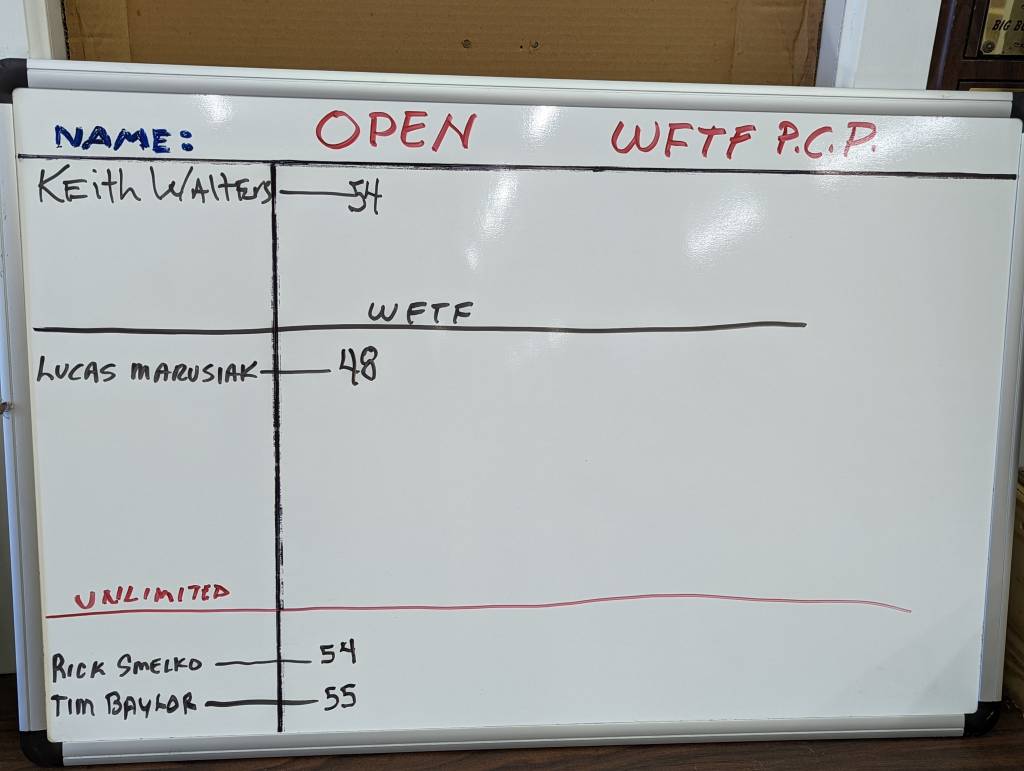 NAME: OPEN WFTF P.C.P.
KEith WAltERs 54
WFTF
LUCAS MARUSIAK 48
UNLIMITED
RICK SMELKO 54
TIM BAYLOR 55